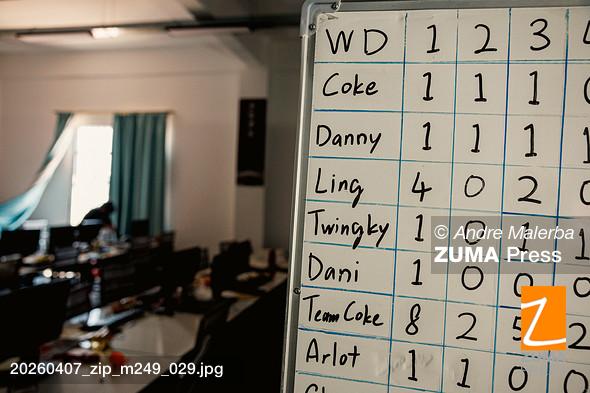 WD 1 2 3
Coke 1 1 1
Danny 1 1 1 1
Ling 4 0 2 0
Twingky 1 0 1 1
Dani 1 0 0 0
Team Coke 8 2 5 2
Arlot 1 1 0 0
© Andre Malerba
ZUMA Press
Z
20260407_zip_m249_029.jpg